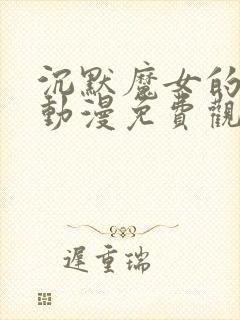 沉默魔女的
動漫免費觀
遲重瑞